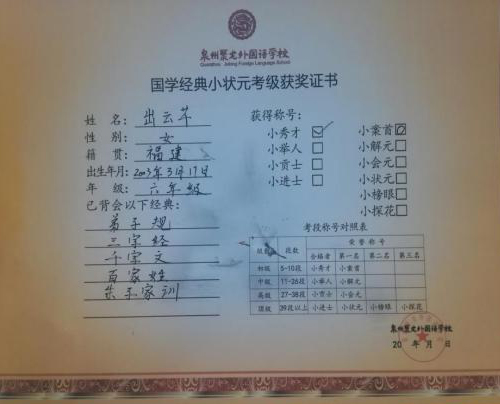 泉州聚龙外国语学校
Quanzhou Julong Foreign Language School
国学经典小状元考级获奖证书
姓 名：出云芊
性 别：女
籍 贯：福建
出生年月：2003年3月17日
年 级：六年级
已背会以下经典：
弟子规
三字经
千字文
百家姓
朱子家训
获得称号：
小秀才☑ 小案首☑
小举人□ 小解元□
小贡士□ 小会元□
小进士□ 小状元□
小榜眼□
小探花□
考段称号对照表
组别 段数 荣誉称号
合格者 第一名 第二名 第三名
初级 5-10段 小秀才 小案首
中级 11-26段 小举人 小解元
高级 27-38段 小贡士 小会元
顶级 39段以上 小进士 小状元 小榜眼 小探花
泉州聚龙外国语学校
20 年 月 日